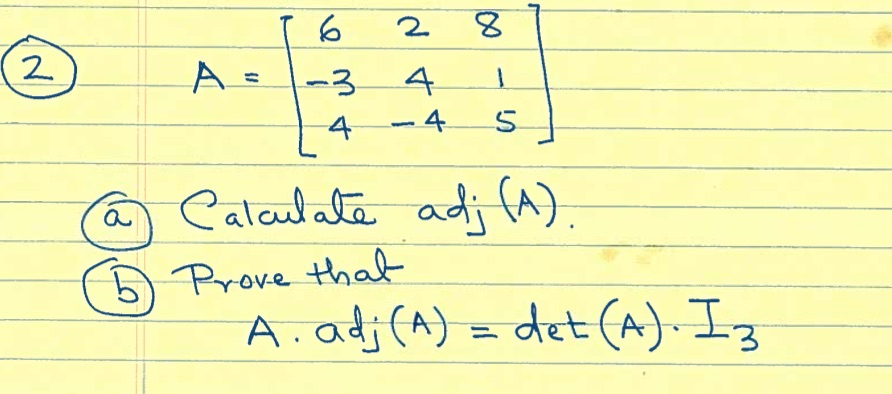 2 A = [ 6 2 8
-3 4 1
4 -4 5 ]
a Calculate adj(A).
b Prove that
A. adj(A) = det(A). I3